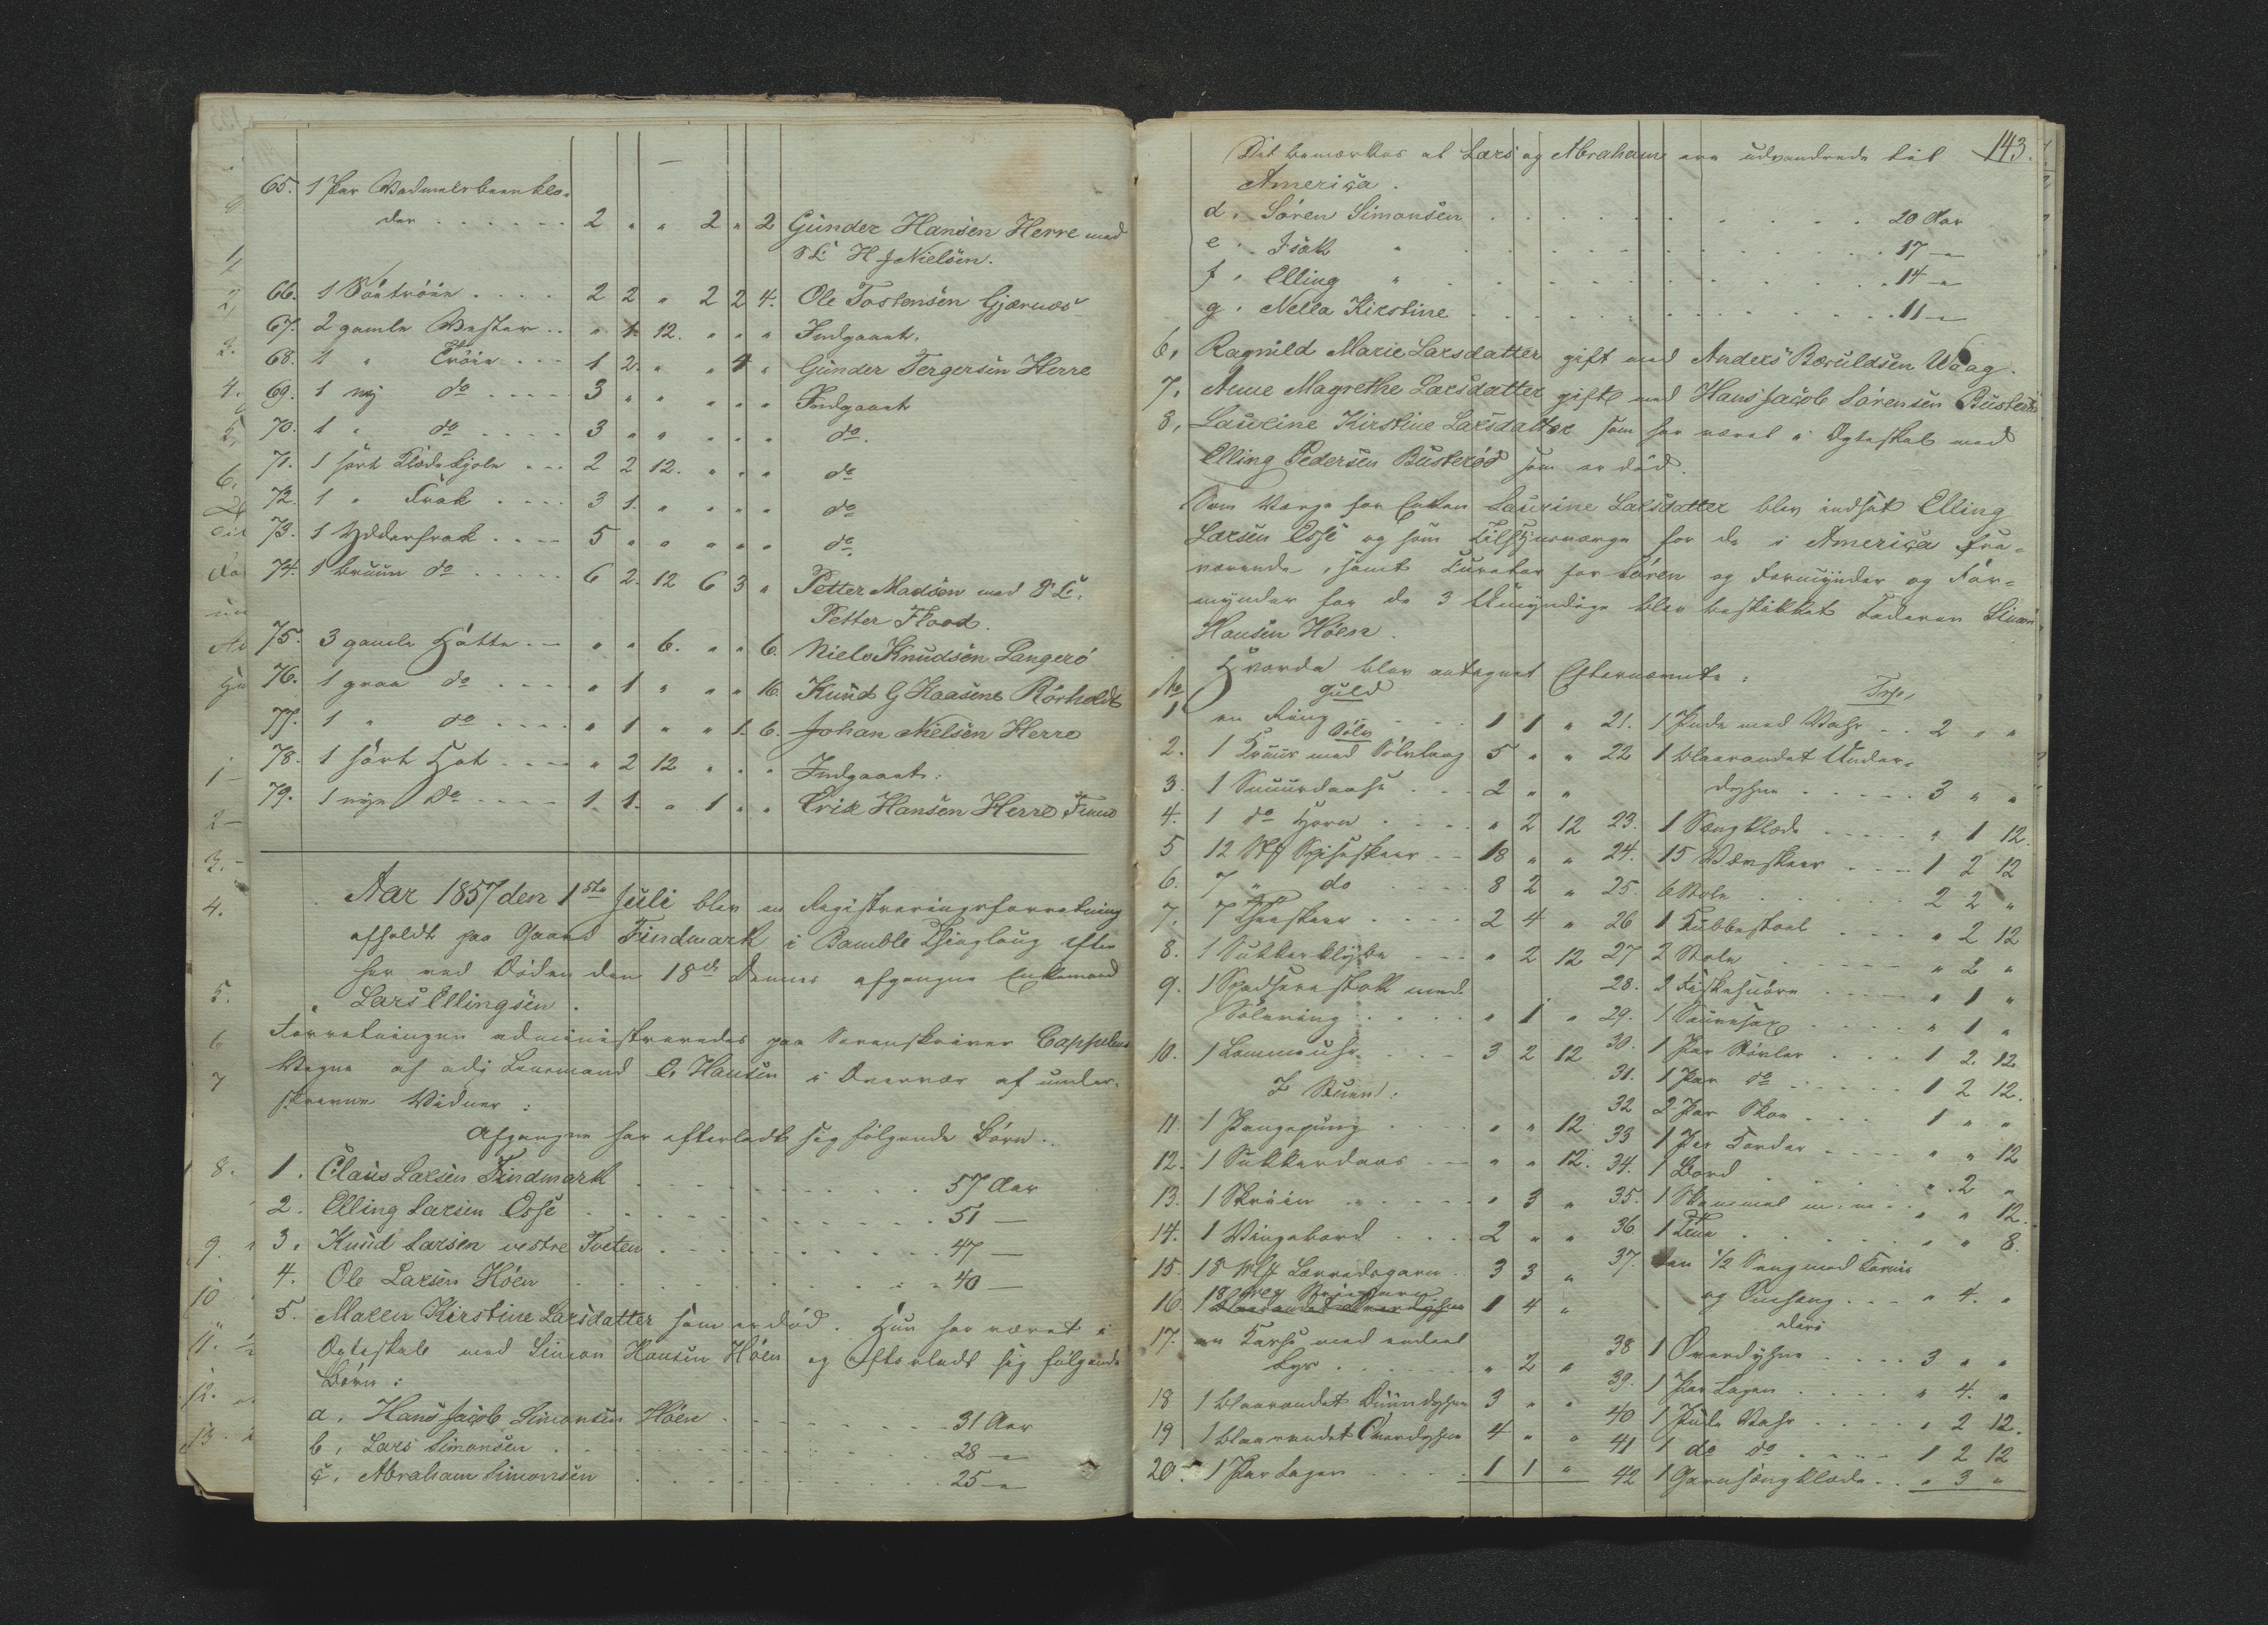 65. 1 Par Vadmelsbeenklæ-
der . . . . . . 2 " " 2 " 2 Gunder Hansen Herre med
S. L. H J Nielsen.
66. 1 . . . . 2 2 " 2 2 4. Ole Tostensen Gjærnæs
67. 2 gamle Vester . . " 1 12. " " " Indgaaet.
68. 1 " Trøie . . . 1 2 " " 4 " Gunder Tergersen Herre
69. 1 ny do . . . . 3 " " " " " Indgaaet
70. 1 " do . . . . 3 " " " " " do.
71. 1 sort Klædekjole . . . 2 2 12. " " " do
72. 1 " Frak . . . . 3 1. " " " " do
73. 1 Ydderfrak . . . . 5 " " " " " do
74. 1 bruun do . . . . . 6 2. 12 6 3 " Petter Madsen med S. L.
Petter Flood.
75. 3 gamle Hatte . . . " " 6. " " 6. Niels Knudsen Langerö
76. 1 graa do . . . . " 1 " " " 16. Knud G Haasene Rörholdt
77. 1 " do . . . . " 1 " " 1. 6. Johan Nielsen Herre
78. 1 sort Hat . . . . " 2 12 " " " Indgaaet.
79. 1 nye Do . . . . 1. 1. " 1 " " Erik Hansen Herre
Aar 1857 den 1ste Juli blev en Registreringsforretning
afholdt paa Gaard Findmark i Bamble Thinglaug efter
her ved Døden den 18de Dennes afgangne Enkemand
Lars Ellingsen.
Forretningen administreredes paa Sorenskriver Cappelens
Vegne af adj Lensmand C. Hansen i Overvær af under-
skrevne Vidner:
Afgangne har efterladt sig følgende Børn.
1. Claus Larsen Findmark . . . 57 Aar
2. Elling Larsen Osse . . . 51 —
3. Knud Larsen vestre Tveten . . . 47 —
4. Ole Larsen Höen . . . 40 —
5. Maren Kirstine Larsdatter som er død. Hun har været i
Ægteskab med Simon Hansen Höen og efterladt sig følgende
Børn:
a. Hans Jacob Simonsen Höen . . . 31 Aar
b. Lars Simonsen . . . 28 —
c. Abraham Simonsen . . . 25 —
143.
Det bemærkes at Lars og Abraham ere udvandrede til
America.
d. Sören Simonsen . . . 20 Aar
e. Isak " . . . 17 —
f. Elling " . . . 14 —
g. Nella Kirstine . . . 11 —
6. Ragnild Marie Larsdatter gift med Anders Bæruldsen Waag.
7. Anne Magrethe Larsdatter gift med Hans Jacob Sörensen
8. Laurine Kirstine Larsdatter som har været i Ægteskab med
Elling Pedersen Busterød som er død.
Som Verge for Enken Laurine Larsdatter blev indsat Elling
Larsen Osse og som Tilsynsverge for de i America fra-
værende, samt Curator for Sören og Formynder og For-
mynder for de 3 Umyndige blev beskikket Faderen Simon
Hansen Höen.
Hvorda blev antegnet Efternævnte:
No Guld
1 en Ring . . . 1 1 "
Sölv
2. 1 Kruus med Sølvlaag 5 " "
3. 1 Snuusdaase . . . 2 " "
4. 1 do Horn . . . " 2 12
5 12 Stk Spiseskeer . . 18 " "
6. 7 " do . . . 8 2 "
7. 7 Theskeer . . . 2 4 "
8. 1 Sukkerklybe . . . " 2 12
9. 1 Spadserestok med
Sølvring . . . " 1 "
10. 1 Lommeuhr . . . 3 2 12
I Stuen:
11. 1 Pengepung . . . " " 12
12. 1 Sukkerdaas . . . " " 12.
13. 1 Skriin . . . " 3 "
14. 1 Vingebord . . . 2 " "
15. 15 Lærredsgarn . . 3 3 "
16. 1 4 "
17. en med endeel
Lys . . . " 2 "
18 1 blaarandet Duundyne 3 " "
19 1 blaarandet Overdyne 4 " "
20. 1 Par Lagen . . . 1 1 "
21. 1 Pude med Vahr . . 2 " "
22 1 blaarandet Under-
dyne . . . 3 " "
23. 1 Sengklæde . . . " 1 12.
24. 15 . . . 1 2 12
25. 6 Stole . . . 2 2 "
26 1 Kubbestoel . . . " 2 12
27 2 Stole . . . " 2 "
28. 2 Fiskesnöre . . . " 1 "
29. 1 Sauesax . . . " 1 "
30. 1 Par Støvler . . . 1 2. 12.
31. 1 Par do . . . 1 2 12.
32 2 Par Skoe . . . 1 " "
33 1 Par . . . " " 12
34. 1 Bord . . . " 2 "
35. 1 m. m. . . " " 12.
36 1 . . . " " 8.
37. en 1/2 Seng med
og Omhæng . . . " 4. "
38 1 Overdyne . . . 3 " "
39. 1 Par Lagen . . . " 4. "
40 1 Pude Vahr . . . " 2 12.
41 1 do do . . . 1 2 12
42 1 Garnsengklæde . . " 3 "